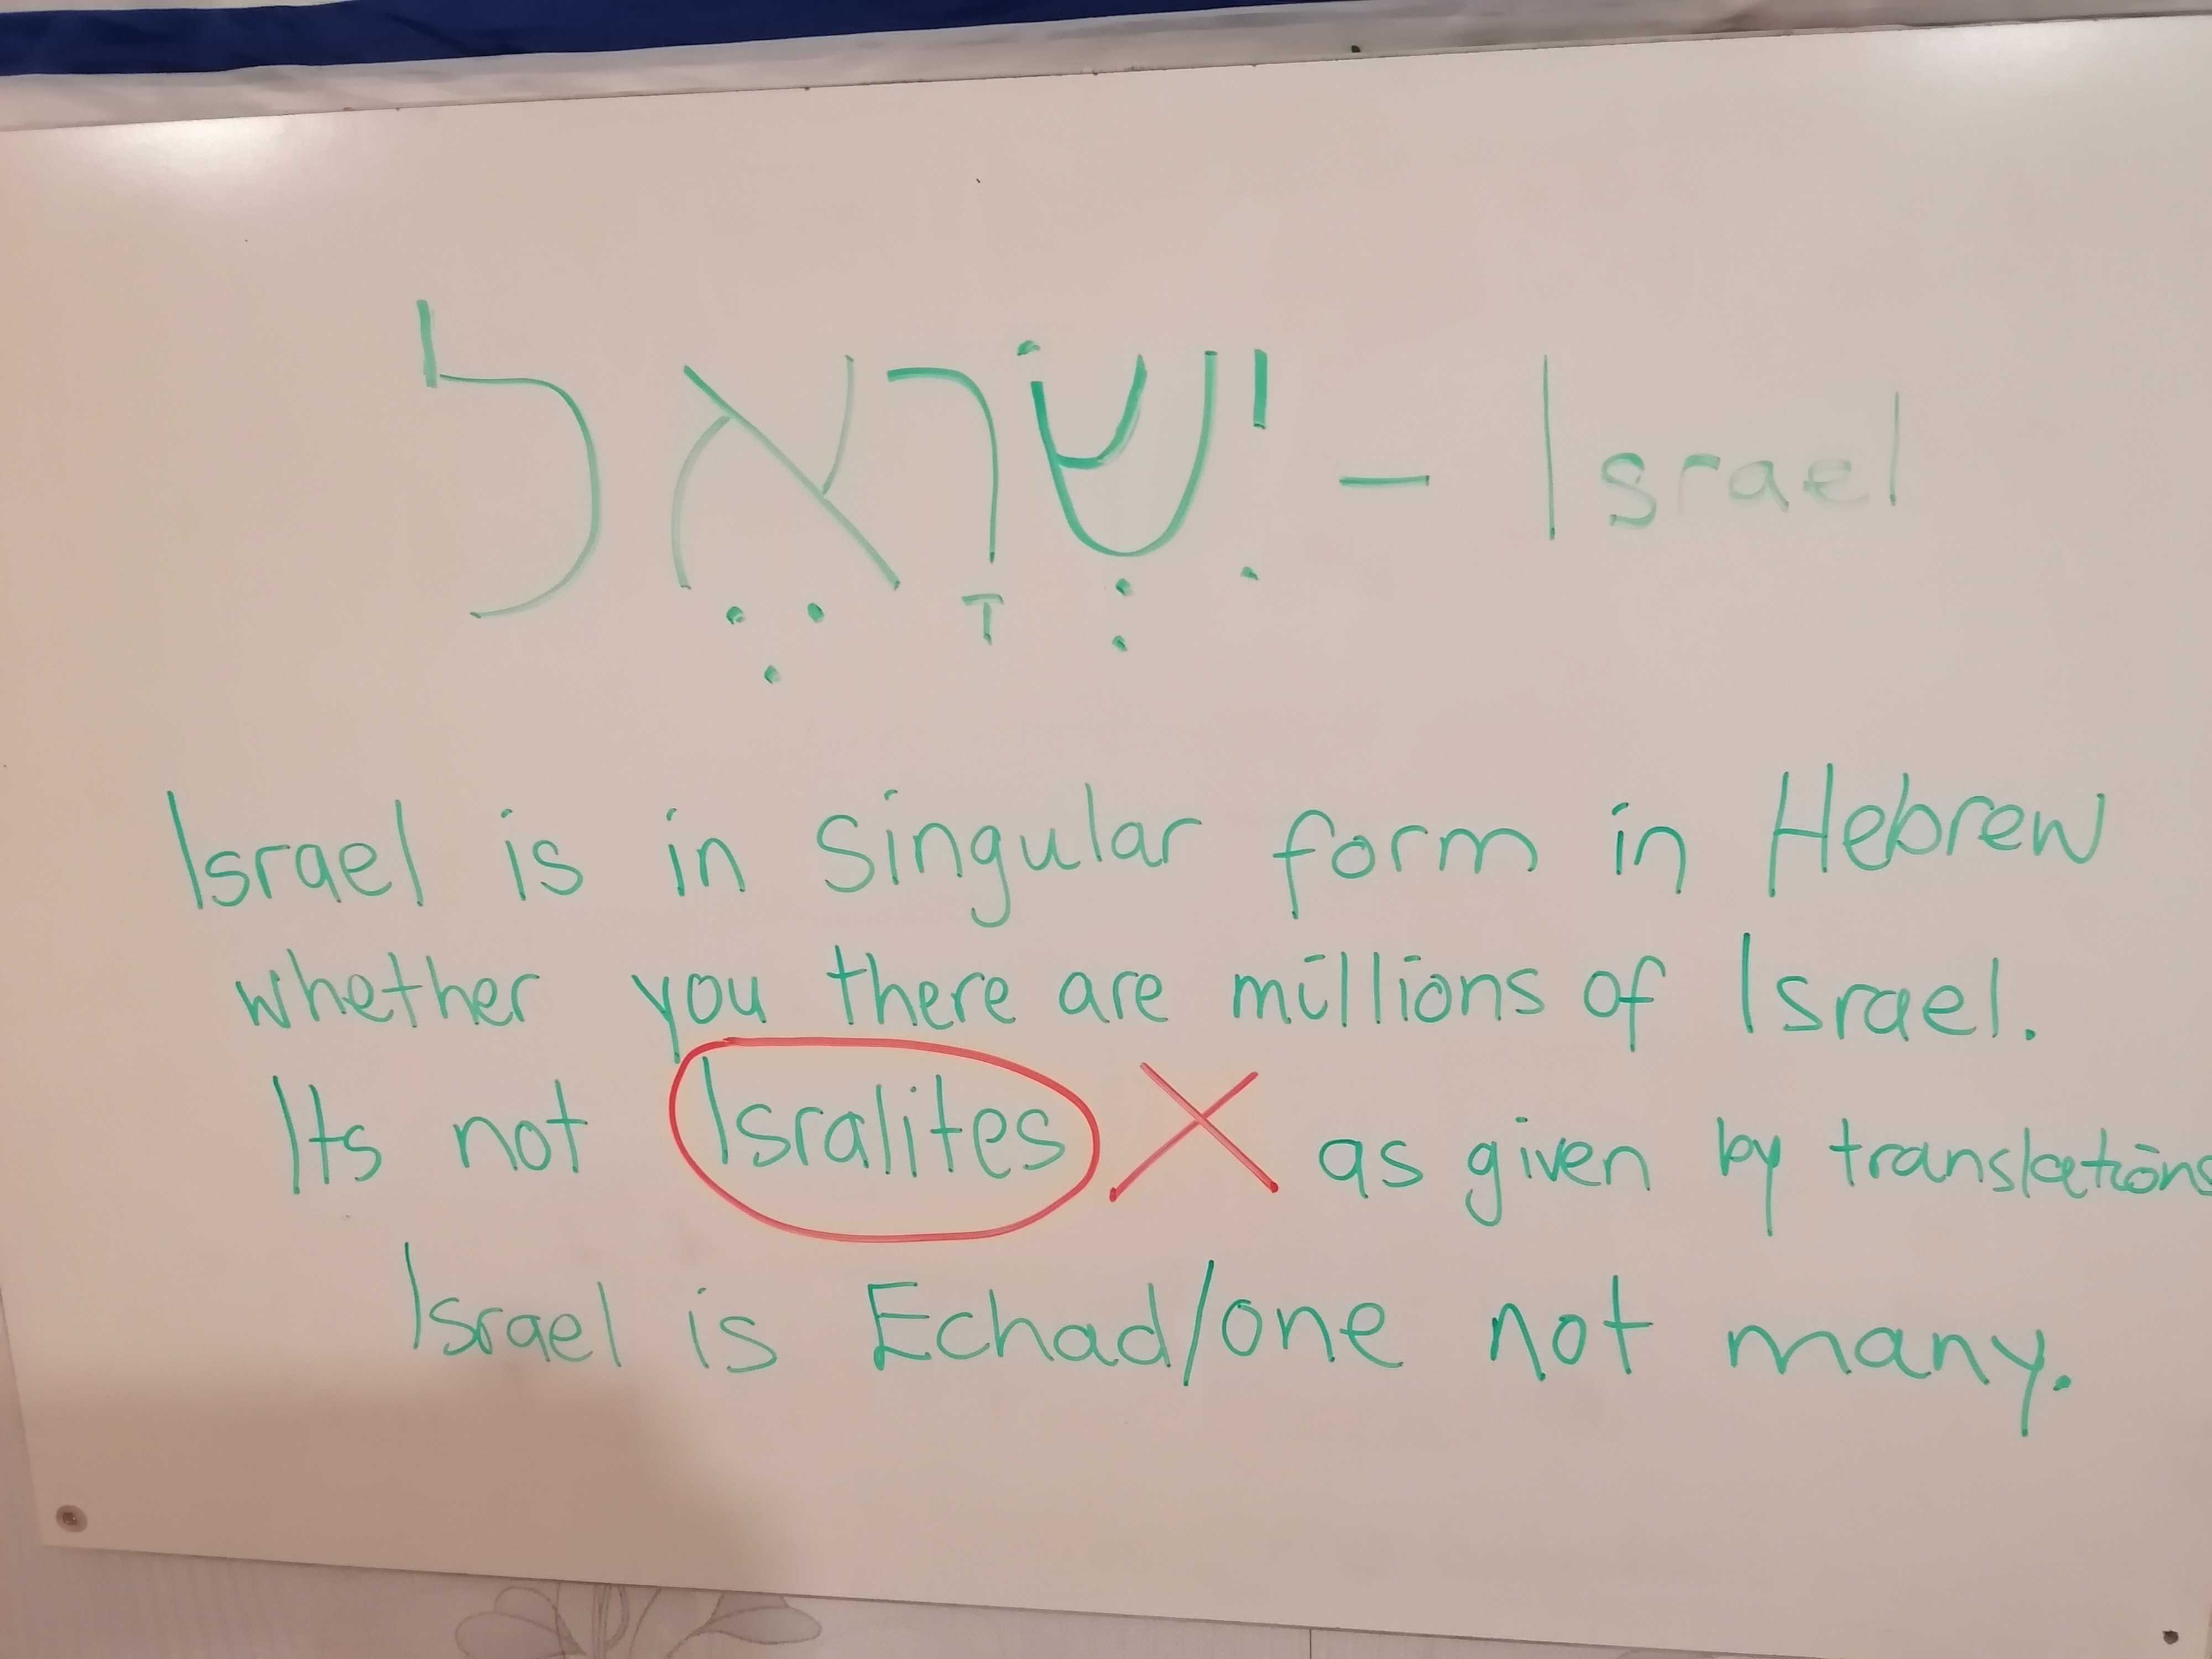 יִשְׂרָאֶל - Israel
Israel is in singular form in Hebrew
whether you there are millions of Israel.
Its not Isralites X as given by translations
Israel is Echad/one not many.